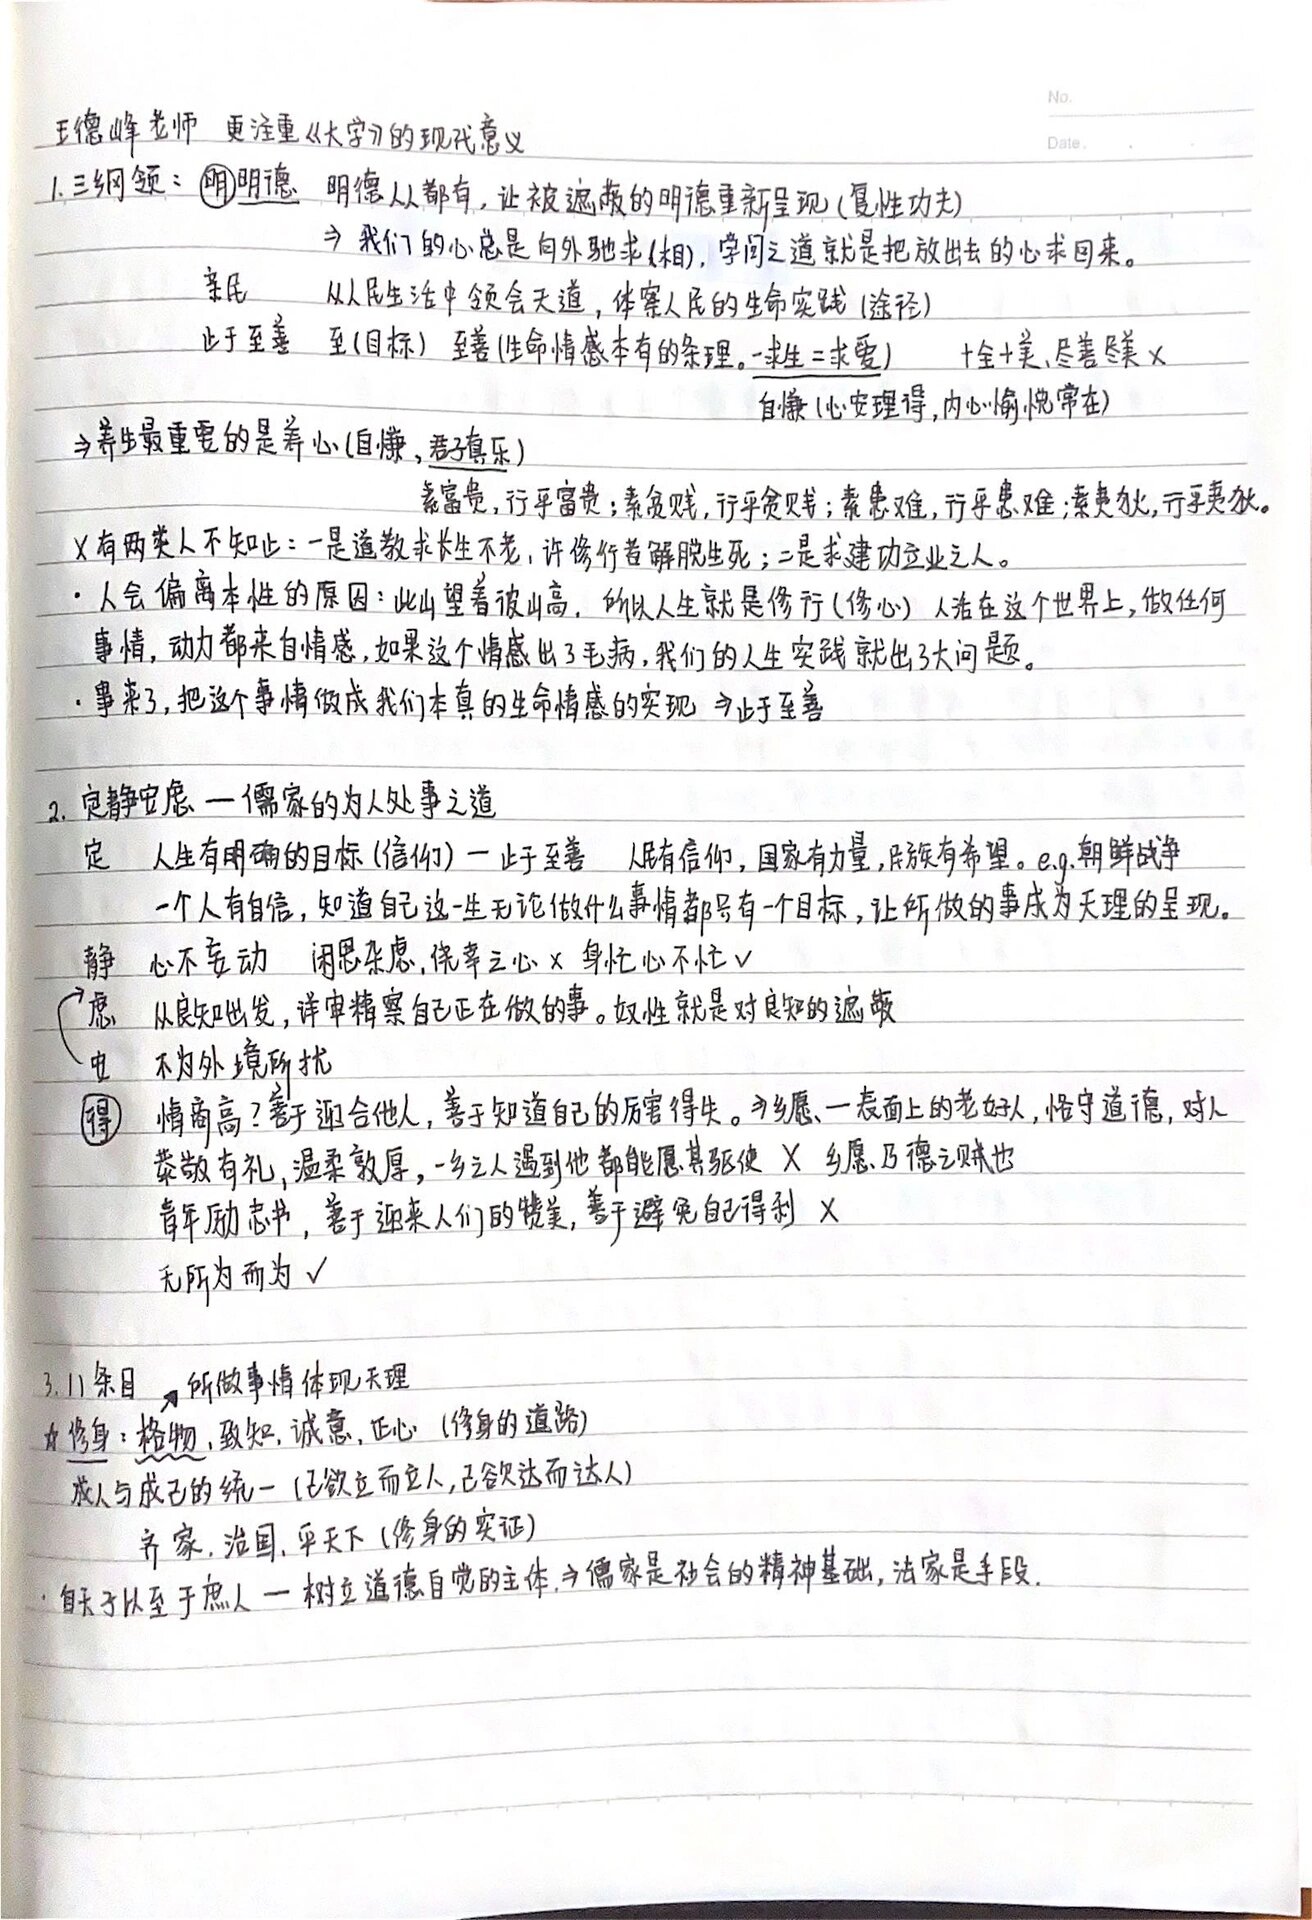 No.
Date.
王德峰老师 更注重《大学》的现代意义
1.三纲领：明明德 明德人人都有，让被遮蔽的明德重新呈现(复性功夫)
⇒ 我们的心总是向外驰求(相)，学问之道就是把放出去的心求回来。
亲民 从人民生活中领会天道，体察人民的生命实践(途径)
止于至善 至(目标) 至善(生命情感本有的条理。一求生二求爱) 十全十美、尽善尽美 x
自慊(心安理得，内心愉悦常在)
⇒养生最重要的是养心(自慊，君子真乐)
素富贵，行乎富贵；素贫贱，行乎贫贱；素患难，行乎患难；素夷狄，行乎夷狄。
X有两类人不知止：一是道教求长生不老，许修行者解脱生死；二是求建功立业之人。
·人会偏离本性的原因：此山望着彼山高，所以人生就是修行(修心) 人活在这个世界上，做任何
事情，动力都来自情感，如果这个情感出了毛病，我们的人生实践就出了大问题。
·事来了，把这个事情做成我们本真的生命情感的实现 ⇒止于至善
2.定静安虑 — 儒家的为人处事之道
定 人生有明确的目标(信仰) — 止于至善 人民有信仰，国家有力量，民族有希望。e.g.朝鲜战争
一个人有自信，知道自己这一生无论做什么事情都只有一个目标，让所做的事成为天理的呈现。
静 心不妄动 闲思杂虑，侥幸之心 x 身忙心不忙 ✓
虑 从良知出发，详审精察自己正在做的事。奴性就是对良知的遮蔽
安 不为外境所扰
得 情商高？善于迎合他人，善于知道自己的厉害得失。⇒乡愿、一表面上的老好人，恪守道德，对人
恭敬有礼，温柔敦厚，一乡之人遇到他都能愿其驱使 X 乡愿乃德之贼也
青年励志书，善于迎来人们的赞美，善于避免自己得利 X
无所为而为 ✓
3.八条目 ↗所做事情体现天理
☆修身：格物、致知、诚意、正心 (修身的道路)
成人与成己的统一(己欲立而立人，己欲达而达人)
齐家、治国、平天下(修身的实证)
·自天子以至于庶人 — 树立道德自觉的主体，⇒儒家是社会的精神基础，法家是手段.